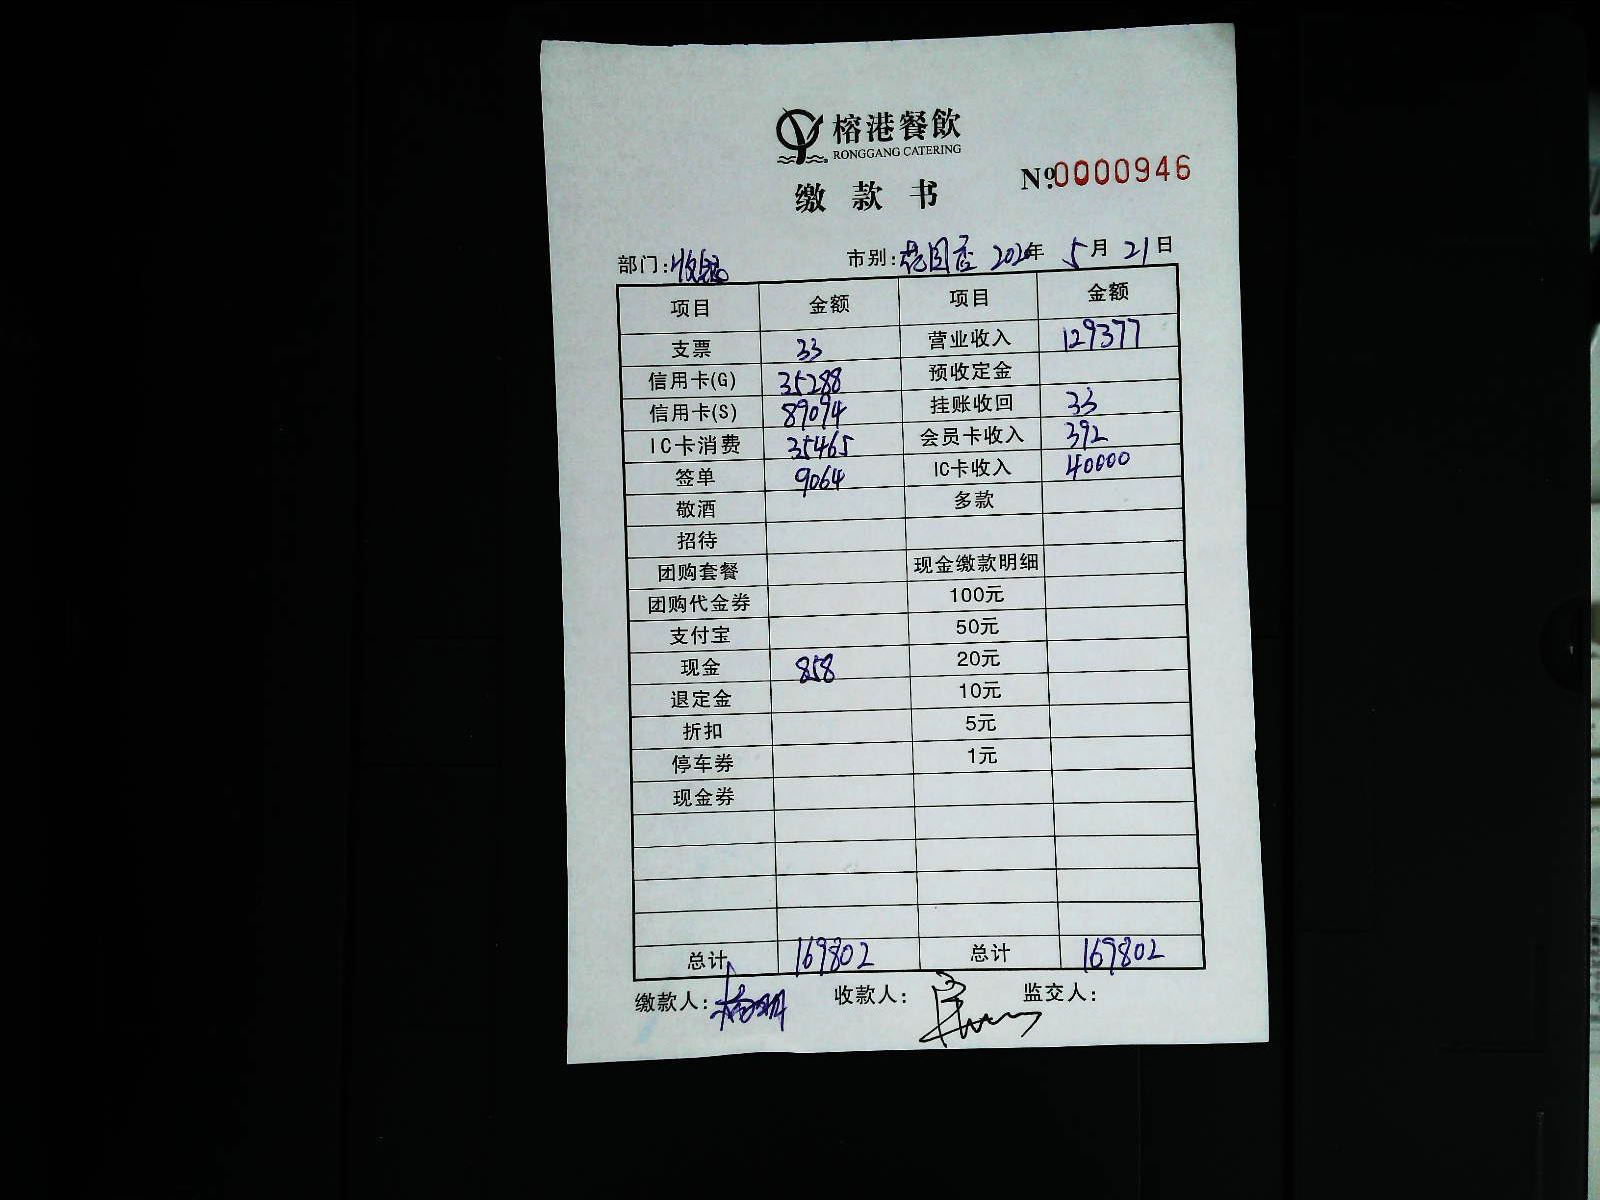 榕港餐飲
RONGGANG CATERING
缴款书
№0000946
部门:收银 市别: 2020年 5月 21日
项目 金额 项目 金额
支票 33 营业收入 129377
信用卡(G) 35288 预收定金
信用卡(S) 89094 挂账收回 33
IC卡消费 35465 会员卡收入 392
签单 9064 IC卡收入 40000
敬酒 多款
招待
团购套餐 现金缴款明细
团购代金券 100元
支付宝 50元
现金 858 20元
退定金 10元
折扣 5元
停车券 1元
现金券
总计 169802 总计 169802
缴款人: 收款人: 监交人: